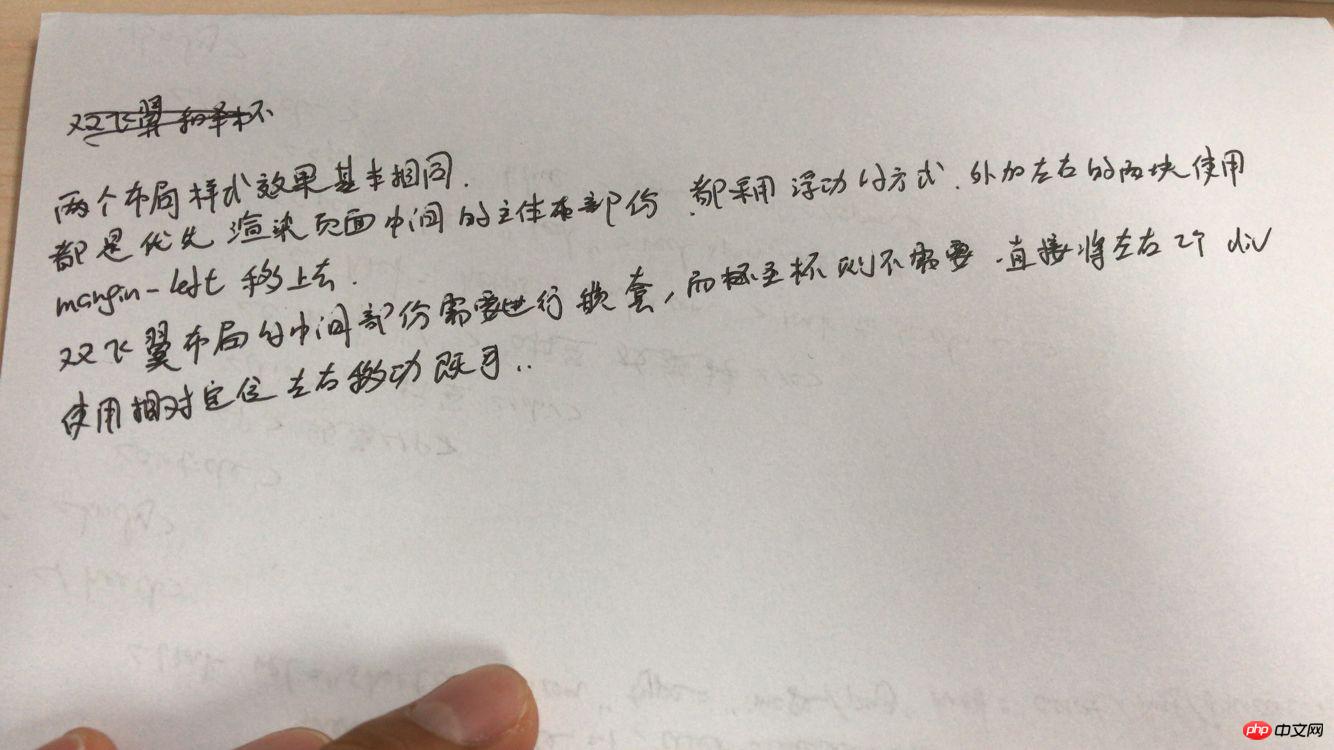 双飞翼和圣杯
两个布局样式效果基本相同.
都是优先渲染页面中间的主体部份.都采用浮动的方式.外加左右的两块使用
margin-left 移上去.
双飞翼布局的中间部份需要进行嵌套,而圣杯则不需要.直接将左右2个div
使用相对定位左右移动既可..
php中文网